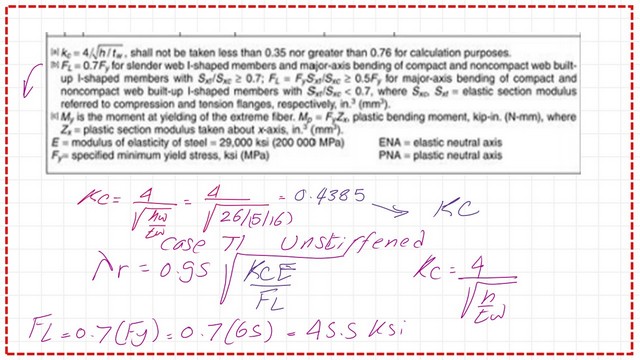 [a] kc = 4/√h/tw, shall not be taken less than 0.35 nor greater than 0.76 for calculation purposes.
[b] FL = 0.7Fy for slender web I-shaped members and major-axis bending of compact and noncompact web built-
up I-shaped members with Sxt/Sxc ≥ 0.7; FL = FySxt/Sxc ≥ 0.5Fy for major-axis bending of compact and
noncompact web built-up I-shaped members with Sxt/Sxc < 0.7, where Sxc, Sxt = elastic section modulus
referred to compression and tension flanges, respectively, in.³ (mm³).
[c] My is the moment at yielding of the extreme fiber. Mp = FyZx, plastic bending moment, kip-in. (N-mm), where
Zx = plastic section modulus taken about x-axis, in.³ (mm³).
E = modulus of elasticity of steel = 29,000 ksi (200 000 MPa) ENA = elastic neutral axis
Fy = specified minimum yield stress, ksi (MPa) PNA = plastic neutral axis
Kc = 4/√(hw/tw) = 4/√(26/(5/16)) = 0.4385 → KC
Case 11 Unstiffened
λr = 0.95 √(KCE/FL) Kc = 4/√(h/tw)
FL = 0.7(Fy) = 0.7(65) = 45.5 Ksi